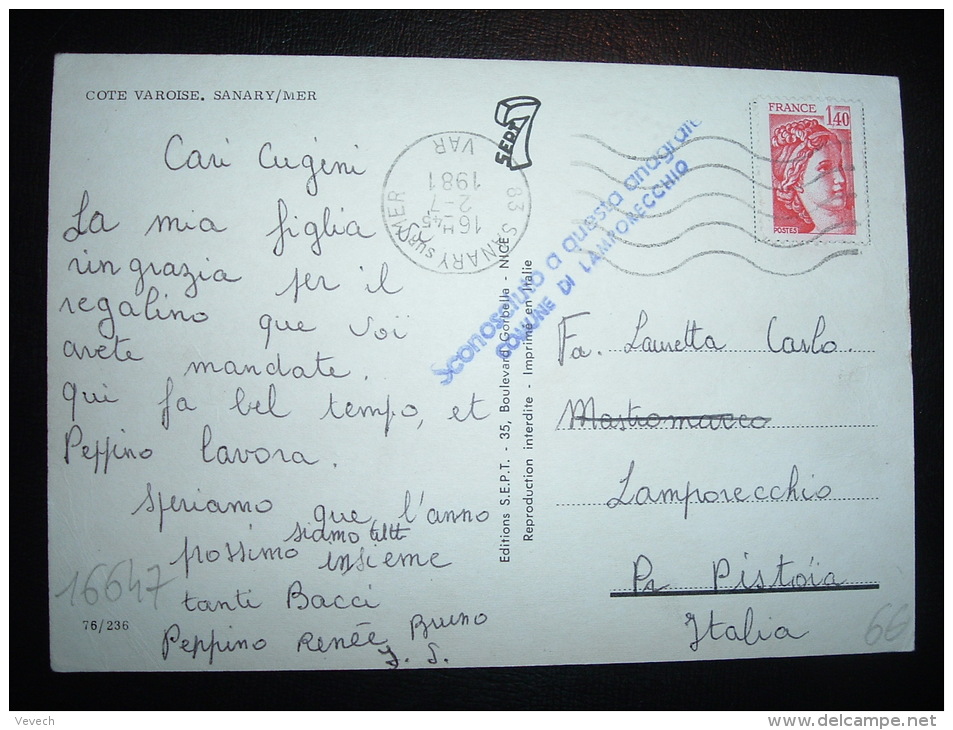 COTE VAROISE. SANARY/MER
Cari Cugini
La mia figlia
ringrazia per il
regalino que voï
avete mandate.
qui fa bel tempo, et
Peppino lavora.
Speriamo que l'anno
possimo siamo tutt insieme
tanti Bacci
Peppino Renée Bruno
J. S.
16647
76/236
SEPT 7
83 SANARY SUR MER
16H45
2-7
1981
VAR
Sconosciuto a questa anagrafe
COMUNE DI LAMPORECCHIO
Editions S.E.P.T. - 35, Boulevard Gorbella - NICE
Reproduction interdite - Imprimé en Italie
FRANCE
1,40
POSTES
Fa. Lauretta Carlo.
Mastromarco
Lamporecchio
Pr Pistoïa
Italia
66
Vevech
www.delcampe.net